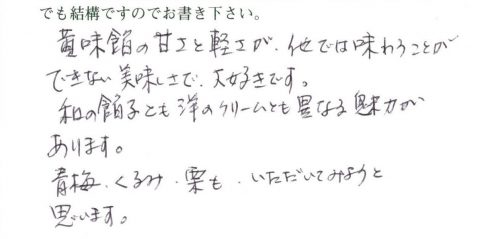 でも結構ですのでお書き下さい。
黄味餡の甘さと軽さが、他では味わうことが
できない美味しさで、大好きです。
和の餡子とも洋のクリームとも異なる魅力が
あります。
青梅、くるみ、栗も、いただいてみようと
思います。